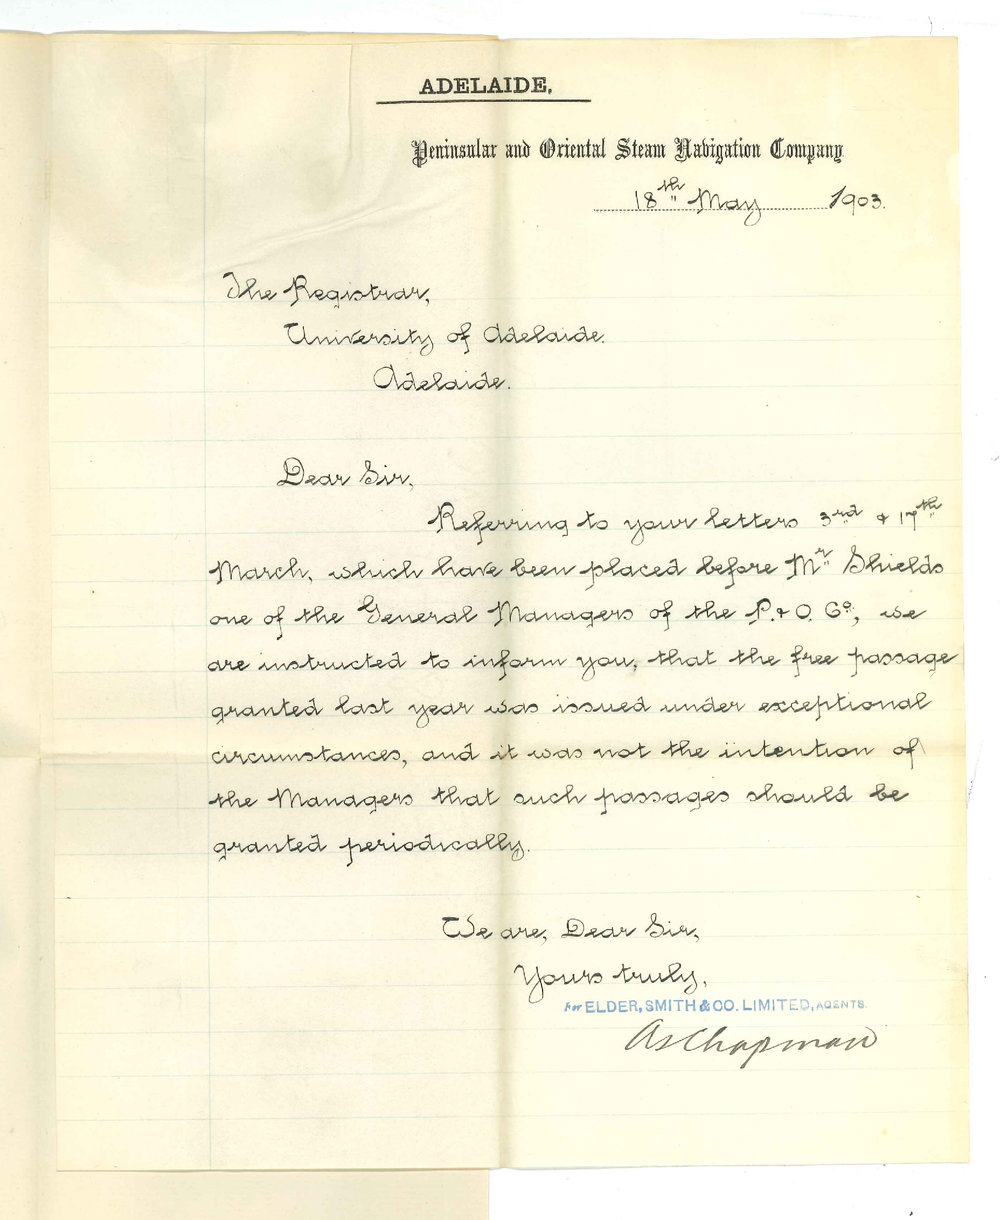 ADELAIDE.
Peninsular and Oriental Steam Navigation Company
18th May 1903.
The Registrar,
University of Adelaide.
Adelaide.
Dear Sir,
Referring to your letters 3rd & 17th
March, which have been placed before Mr Shields
one of the General Managers of the P. & O. Co, we
are instructed to inform you, that the free passage
granted last year was issued under exceptional
circumstances, and it was not the intention of
the Managers that such passages should be
granted periodically.
We are, Dear Sir,
Yours truly,
For ELDER, SMITH & CO. LIMITED, AGENTS.
As Chapman